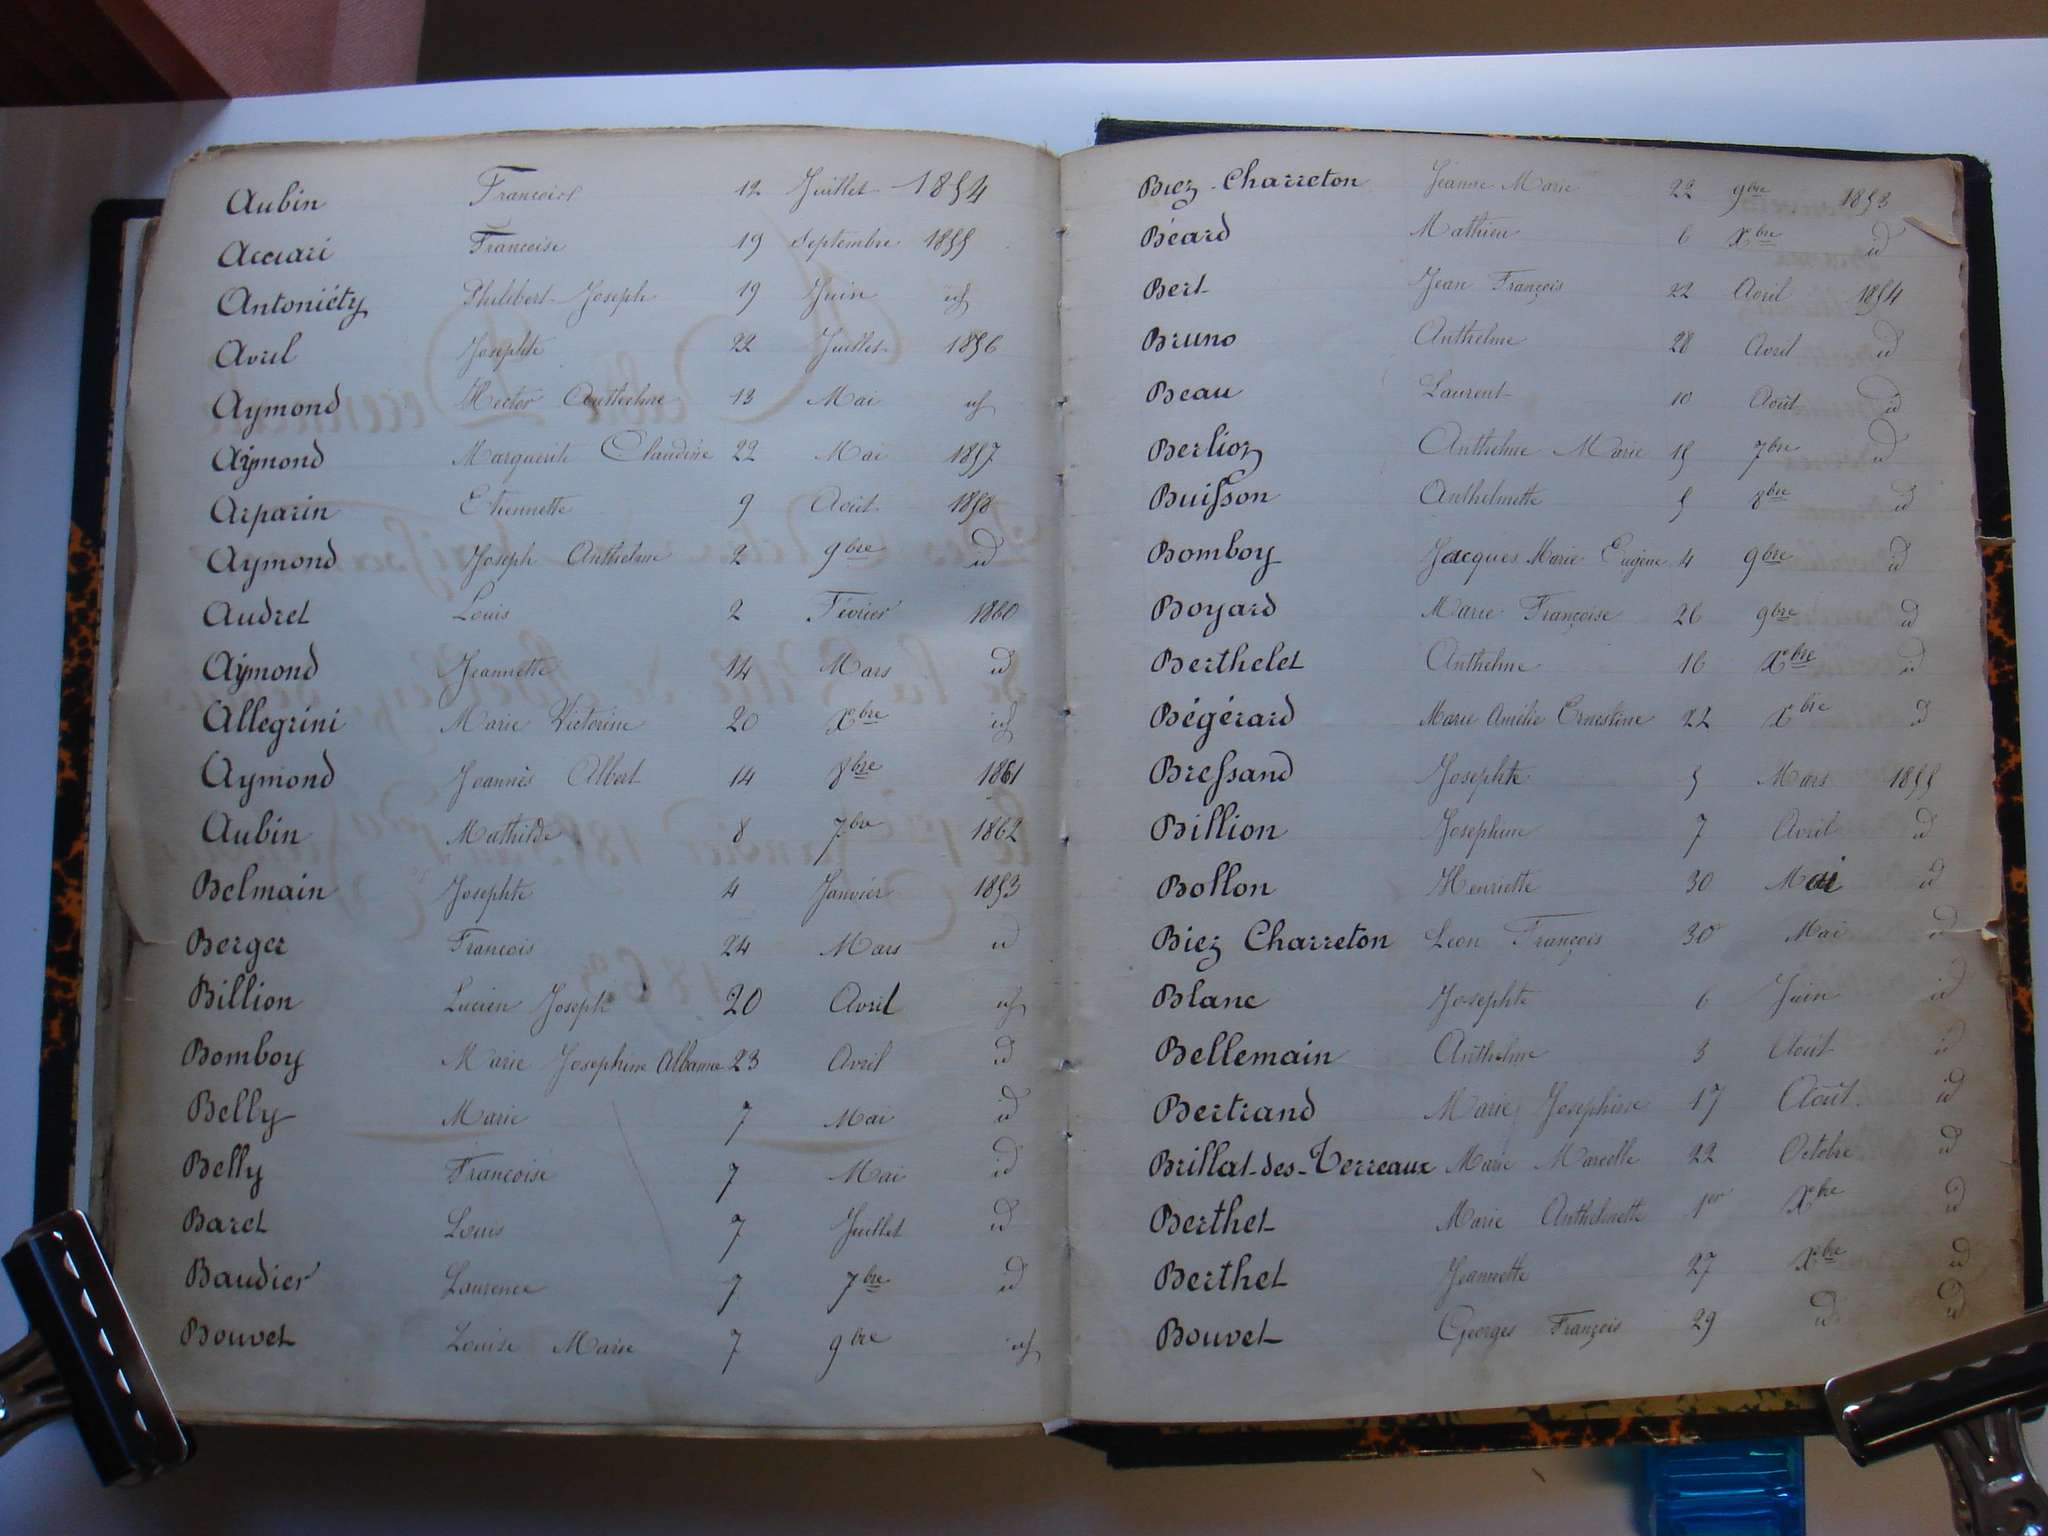 Aubin François 12 Juillet 1854
Acciari Françoise 19 Septembre 1855
Antoniéty Philibert Joseph 19 Juin id
Avril Josephte 22 Juillet 1856
Aymond Hector Anthelme 13 Mai id
Aymond Marguerite Claudine 22 Mai 1857
Arparin Etiennette 9 Août 1858
Aymond Joseph Anthelme 2 9bre id
Audret Louis 2 Février 1860
Aymond Jeannette 14 Mars id
Allegrini Marie Victorine 20 Xbre id
Aymond Joannès Albert 14 8bre 1861
Aubin Mathilde 8 7bre 1862
Belmain Josephte 4 Janvier 1853
Berger François 24 Mars id
Billion Lucien Joseph 20 Avril id
Bomboy Marie Josephine Albanne 23 Avril id
Belly Marie 7 Mai id
Belly Françoise 7 Mai id
Baret Louis 7 Juillet id
Baudier Laurence 7 7bre id
Bouvet Louise Marie 7 9bre id
Biez-Charreton Jeanne Marie 22 9bre 1853
Béard Mathieu 6 Xbre id
Bert Jean François 22 Avril 1854
Bruno Anthelme 28 Avril id
Beau Laurent 10 Août id
Berlioz Anthelme Marie 15 7bre id
Buisson Anthelmette 5 8bre id
Bomboy Jacques Marie Eugène 4 9bre id
Boyard Marie Françoise 26 9bre id
Berthelet Anthelme 16 Xbre id
Bégérard Marie Amélie Ernestine 22 Xbre id
Bressand Josephte 5 Mars 1855
Billion Josephine 7 Avril id
Bollon Henriette 30 Mai id
Biez Charreton Léon François 30 Mai id
Blanc Josephte 6 Juin id
Bellemain Anthelme 3 Août id
Bertrand Marie Josephine 17 Août id
Brillat-des-Terreaux Marie Marcelle 22 Octobre id
Berthet Marie Anthelmette 1er Xbre id
Berthet Jeannette 27 Xbre id
Bouvet Georges François 29 id id